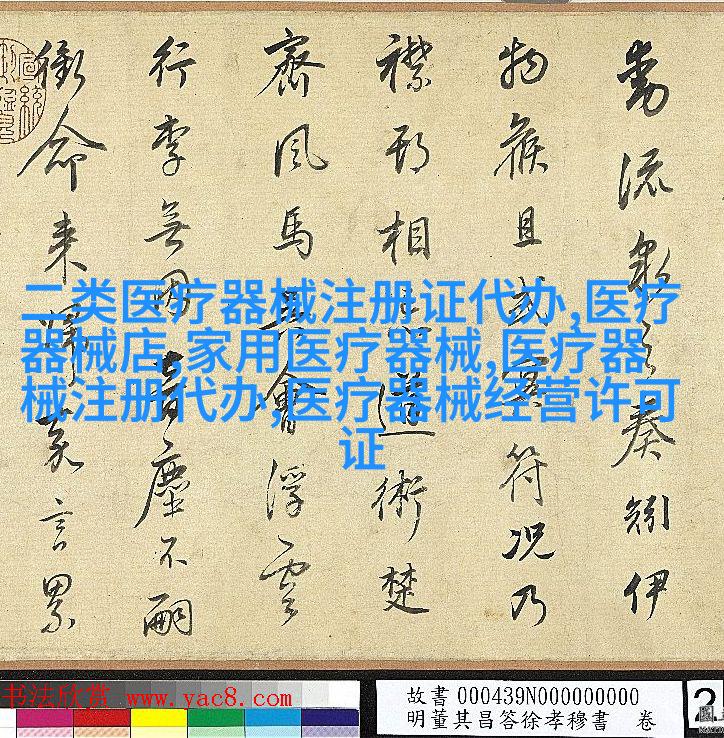 動流泉之奏矧伊
物候且或冥符况乃
襟相道術楚
齊風馬異會浮雲
行李無因音塵不嗣
銜命来歸言累
二类医疗器械注册证代办,医疗
器械店,家用医疗器械,医疗器
械注册代办,医疗器械经营许可
证
书法欣赏 www.yac8.com
故書 000439N000000000
明董其昌答徐孝穆書 卷
2